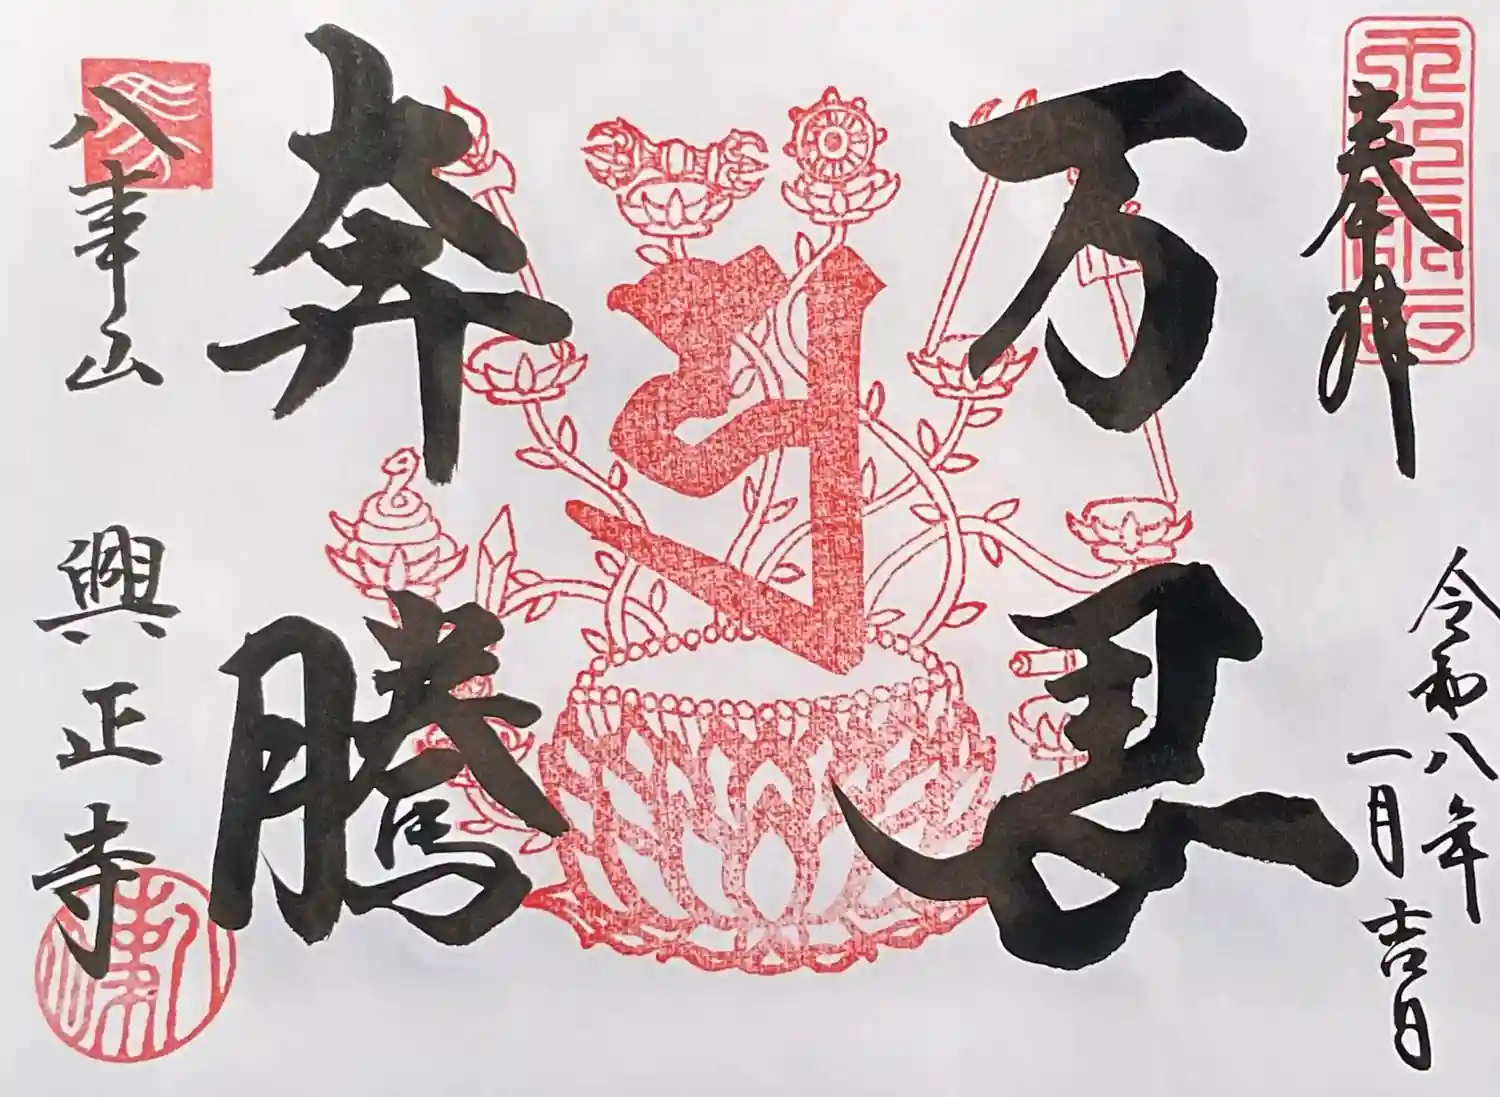 奉拝
令和八年
一月吉日
万馬
奔騰
八事山 興正寺